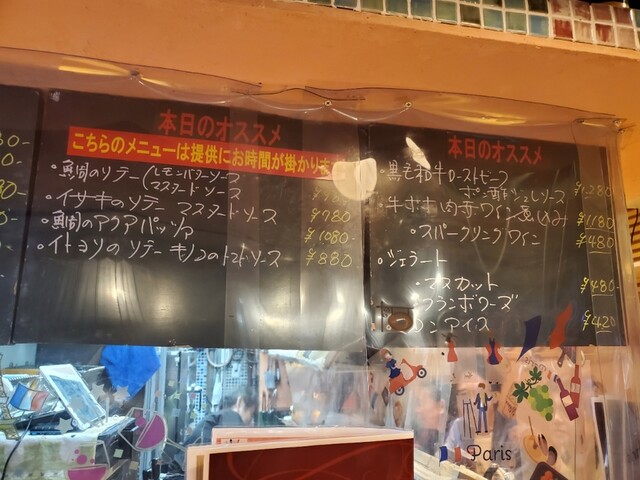 本日のオススメ
こちらのメニューは提供にお時間が掛かります
・鯛のソテー(レモンバターソース
マスタードソース
・イサキのソテー マスタードソース ¥780
・鯛のアクアパッツァ ¥1080-
・イトヨリのソテー キノコのトマトソース ¥880
本日のオススメ
・黒毛和牛ローストビーフ
ポン酢ジュレソース ¥1,280
・牛ホホ肉赤ワイン煮込み ¥1180
・スパークリングワイン ¥480
・ジェラート
・マスカット ¥480-
・フランボワーズ
アイス ¥420
Paris